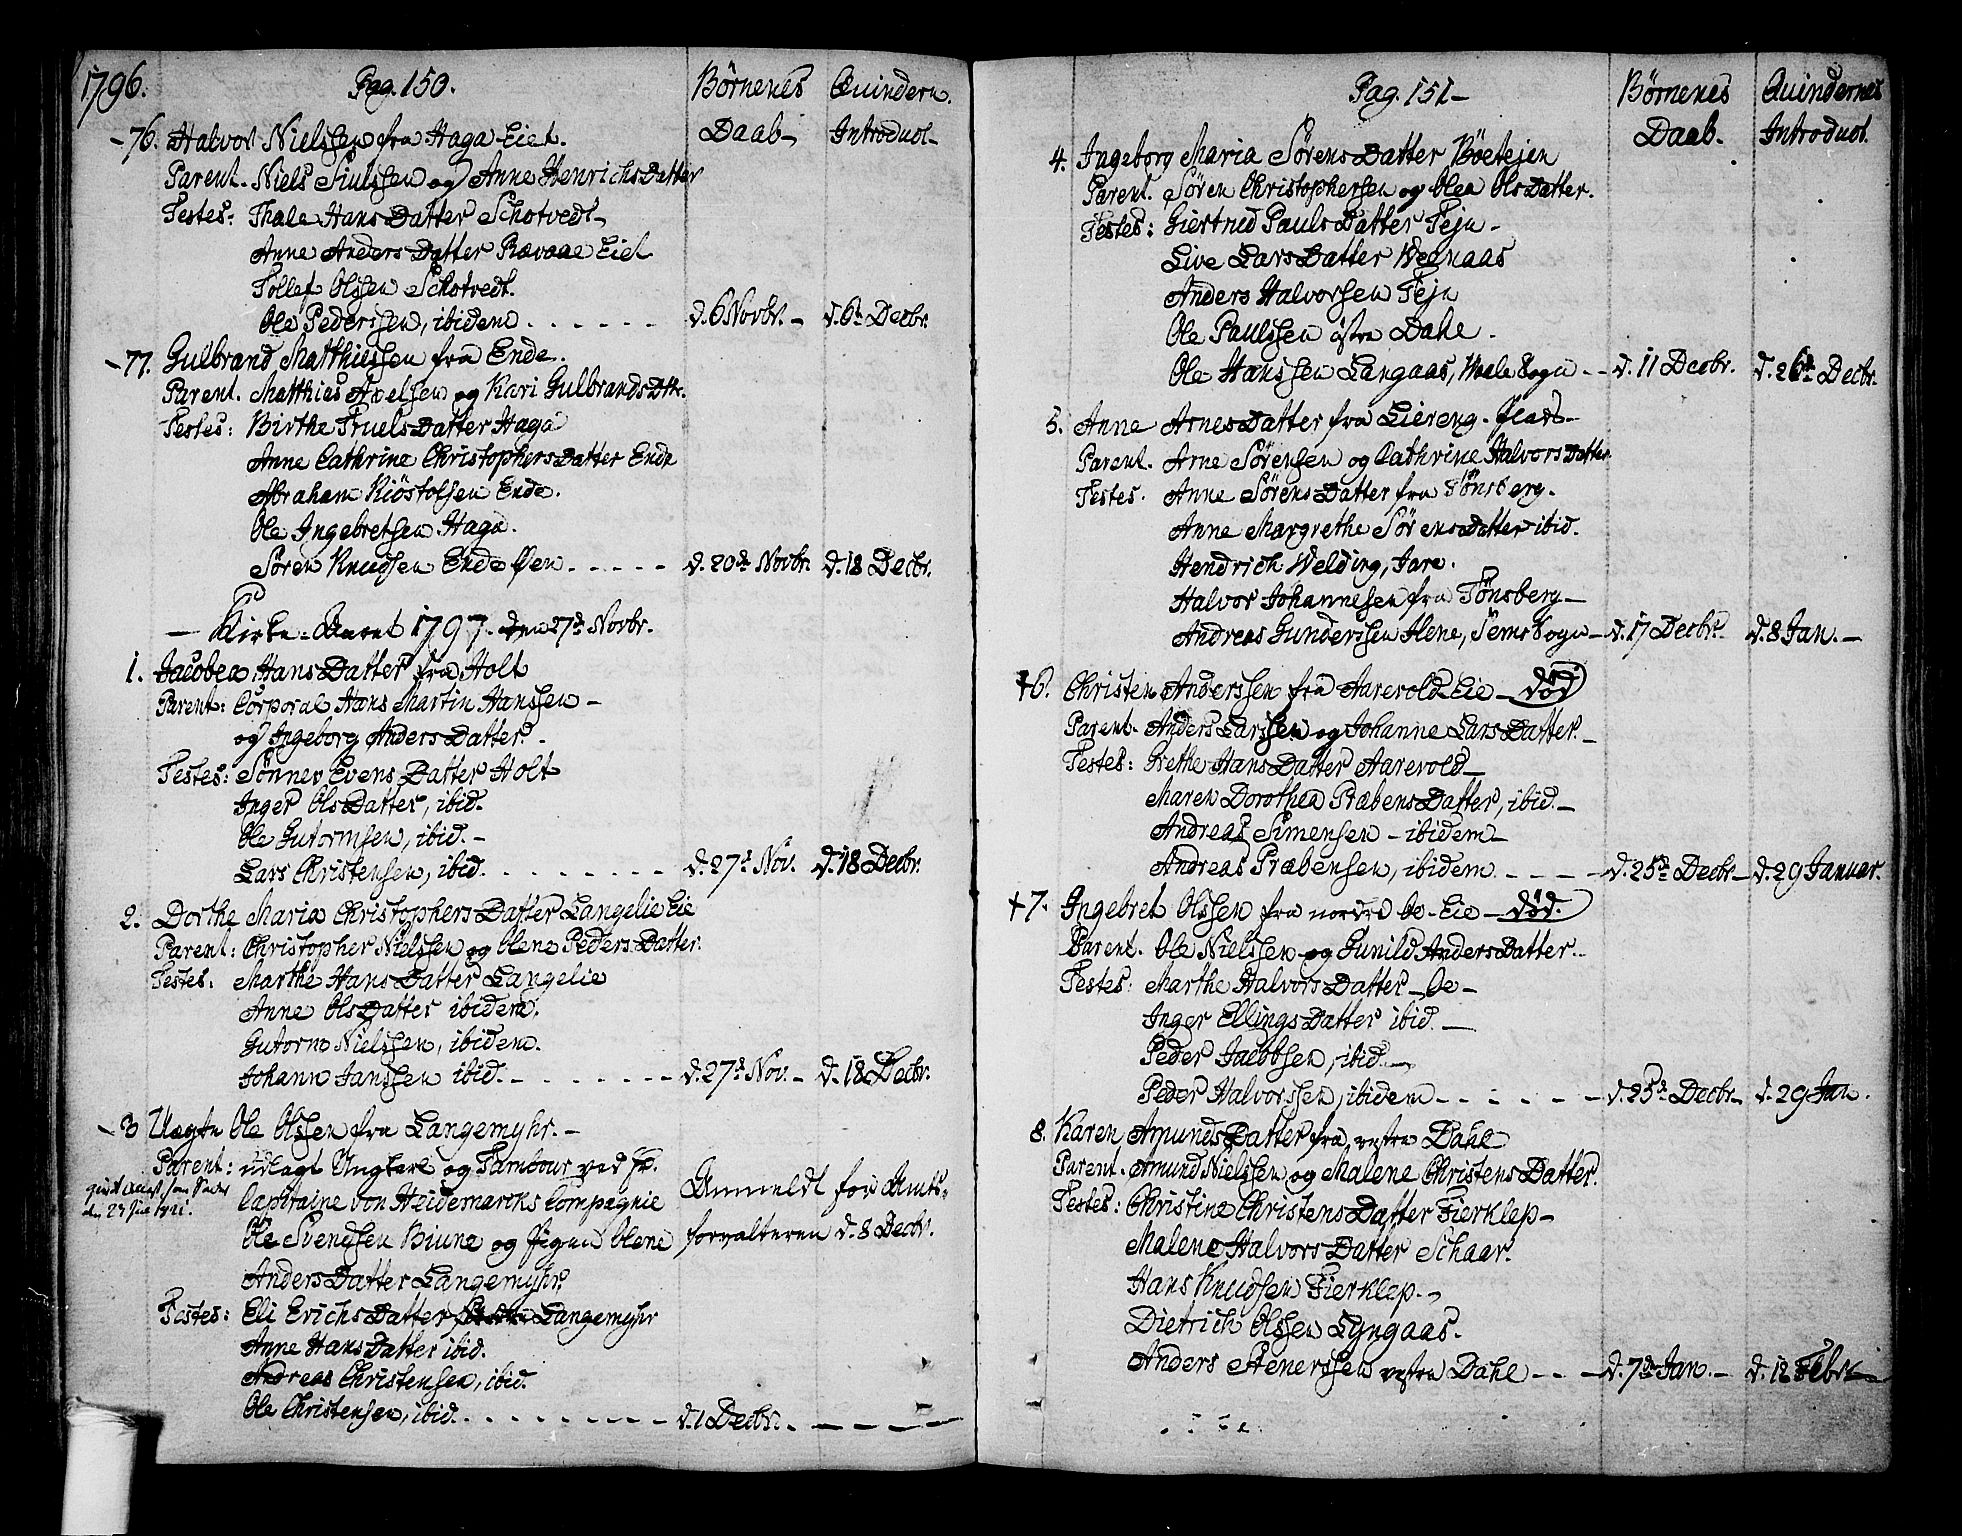 1796.
Pag. 150.
Børnenes Daab-
Quindern. Introduct-
-76. Halvor Nielssen fra Haga Eiet.
Parent. Niels Siulssen og Anne HenrichsDatter
Testes: Thale HansDatter Schotvedt-
Anne AndersDatter Ravaae Eiet
Tollef Olssen Schotvedt.
Ole Pederssen, ibidem . . . . . . d. 6 Novbr. - d. 6te Decbr.
-77. Gulbrand Matthiessen fra Ende.
Parent. Matthies Axelsen og Kari GulbrandsDtr.
Testes: Birthe TruelsDatter Haga
Anne Cathrine ChristophersDatter Ende
Abraham Kiöstolsen Ende.
Ole Ingebretsen Haga.
Sören Knudsen Ende Øen . . . . . d. 20de Novbr. d. 18 Decbr.
- Kirke-Aaret 1797. den 27de Novbr.
1. Jacobea HansDatter fra Holt
Parent: Corporal Hans Martin Hanssen -
og Ingeborg AndersDatter. -
Testes: Sönnev EvensDatter Holt
Inger OlsDatter, ibid.
Ole Gutormsen, ibid. -
Lars Christensen, ibid. . . . . . . . . d. 27de Nov. d. 18 Decbr.
2. Dorthe Maria ChristophersDatter Langelie Eie
Parent: Christopher Nielssen og Olene PedersDatter.
Testes: Marthe HansDatter Langelie
Anne OlsDatter ibidem.
Gutorm Nielssen, ibidem.
Johann Janssen ibid. - . . . . . . d. 27de Nov. - d. 18 Decbr.
-3 Uægte Ole Olssen fra Langemyhr. -
Parent: udlagt Ungkarl og Tambour ved
Capitaine von Heidemarcks Compagnie
Ole Svendsen Biune og Pigen Olene
AndersDatter Langemyhr.
Anmeldt for Amts-
forvalteren d. 8 Decbr.
Testes: Eli ErichsDatter Langemyhr
Anne HansDatter ibid.
Andreas Christensen, ibid.
Ole Christensen, ibid. . . . . . . . . d. 1 Decbr. - - - - -
Pag. 151-
Børnenes Daab.
Quindernes Introduct.
4. Ingeborg Maria SörensDatter Böetejen
Parent. Sören Christophersen og Olea OlsDatter.
Testes: Giertrud PaulsDatter Teju -
Live LarsDatter Wegnaas
Anders Halvorssen Teju
Ole Paulssen östre Dahl.
Ole Hanssen Langaas, Wale Sogn - - d. 11 Decbr. d. 26de Decbr.
5. Anne ArnesDatter fra Liereng.
Parent. Arne Sörensen og Cathrine HalvorsDatter
Testes. Anne SörensDatter fra Tönsberg.
Anne Margrethe SörensDatter ibid.
Hendrich Welding, Jare.
Halvor Johannesen fra Tönsberg -
Andreas Gunderssen Ilene, Sems Sogn - d. 17 Decbr. d. 8 Jan. -
+6. Christen Anderssen fra Aarevold Eie - död
Parent. Anders Larssen og Johanne LarsDatter. -
Testes: Grethe HansDatter Aarevold -
Maren Dorothea PræbensDatter, ibid. -
Andreas Simensen - ibidem -
Andreas Præbensen, ibidem . - - - d. 25de Decbr - d. 29 Januar.
+7. Ingebret Olssen fra nordre Oe-Eie - död.
Parent. Ole Nielssen og Gunild AndersDatter. -
Testes: Marthe HalvorsDatter - Oe -
Inger EllingsDatter ibid. -
Peder Jacobsen, ibid. -
Peder Halvorssen, ibidem - - - - - d. 25de Decbr - d. 29 Jan.
8. Karen AmundsDatter fra vestre Dahl
Parent. Amund Nielssen og Malene ChristensDatter.
Testes: Christine ChristensDatter Fierklep -
Malene HalvorsDatter Schaar.
Hans Knudsen Fierklep. -
Dietrich Olssen Lyngaas.
Anders Stenerssen vestre Dahl - - - d. 7de Jan. - d. 12 Febr.